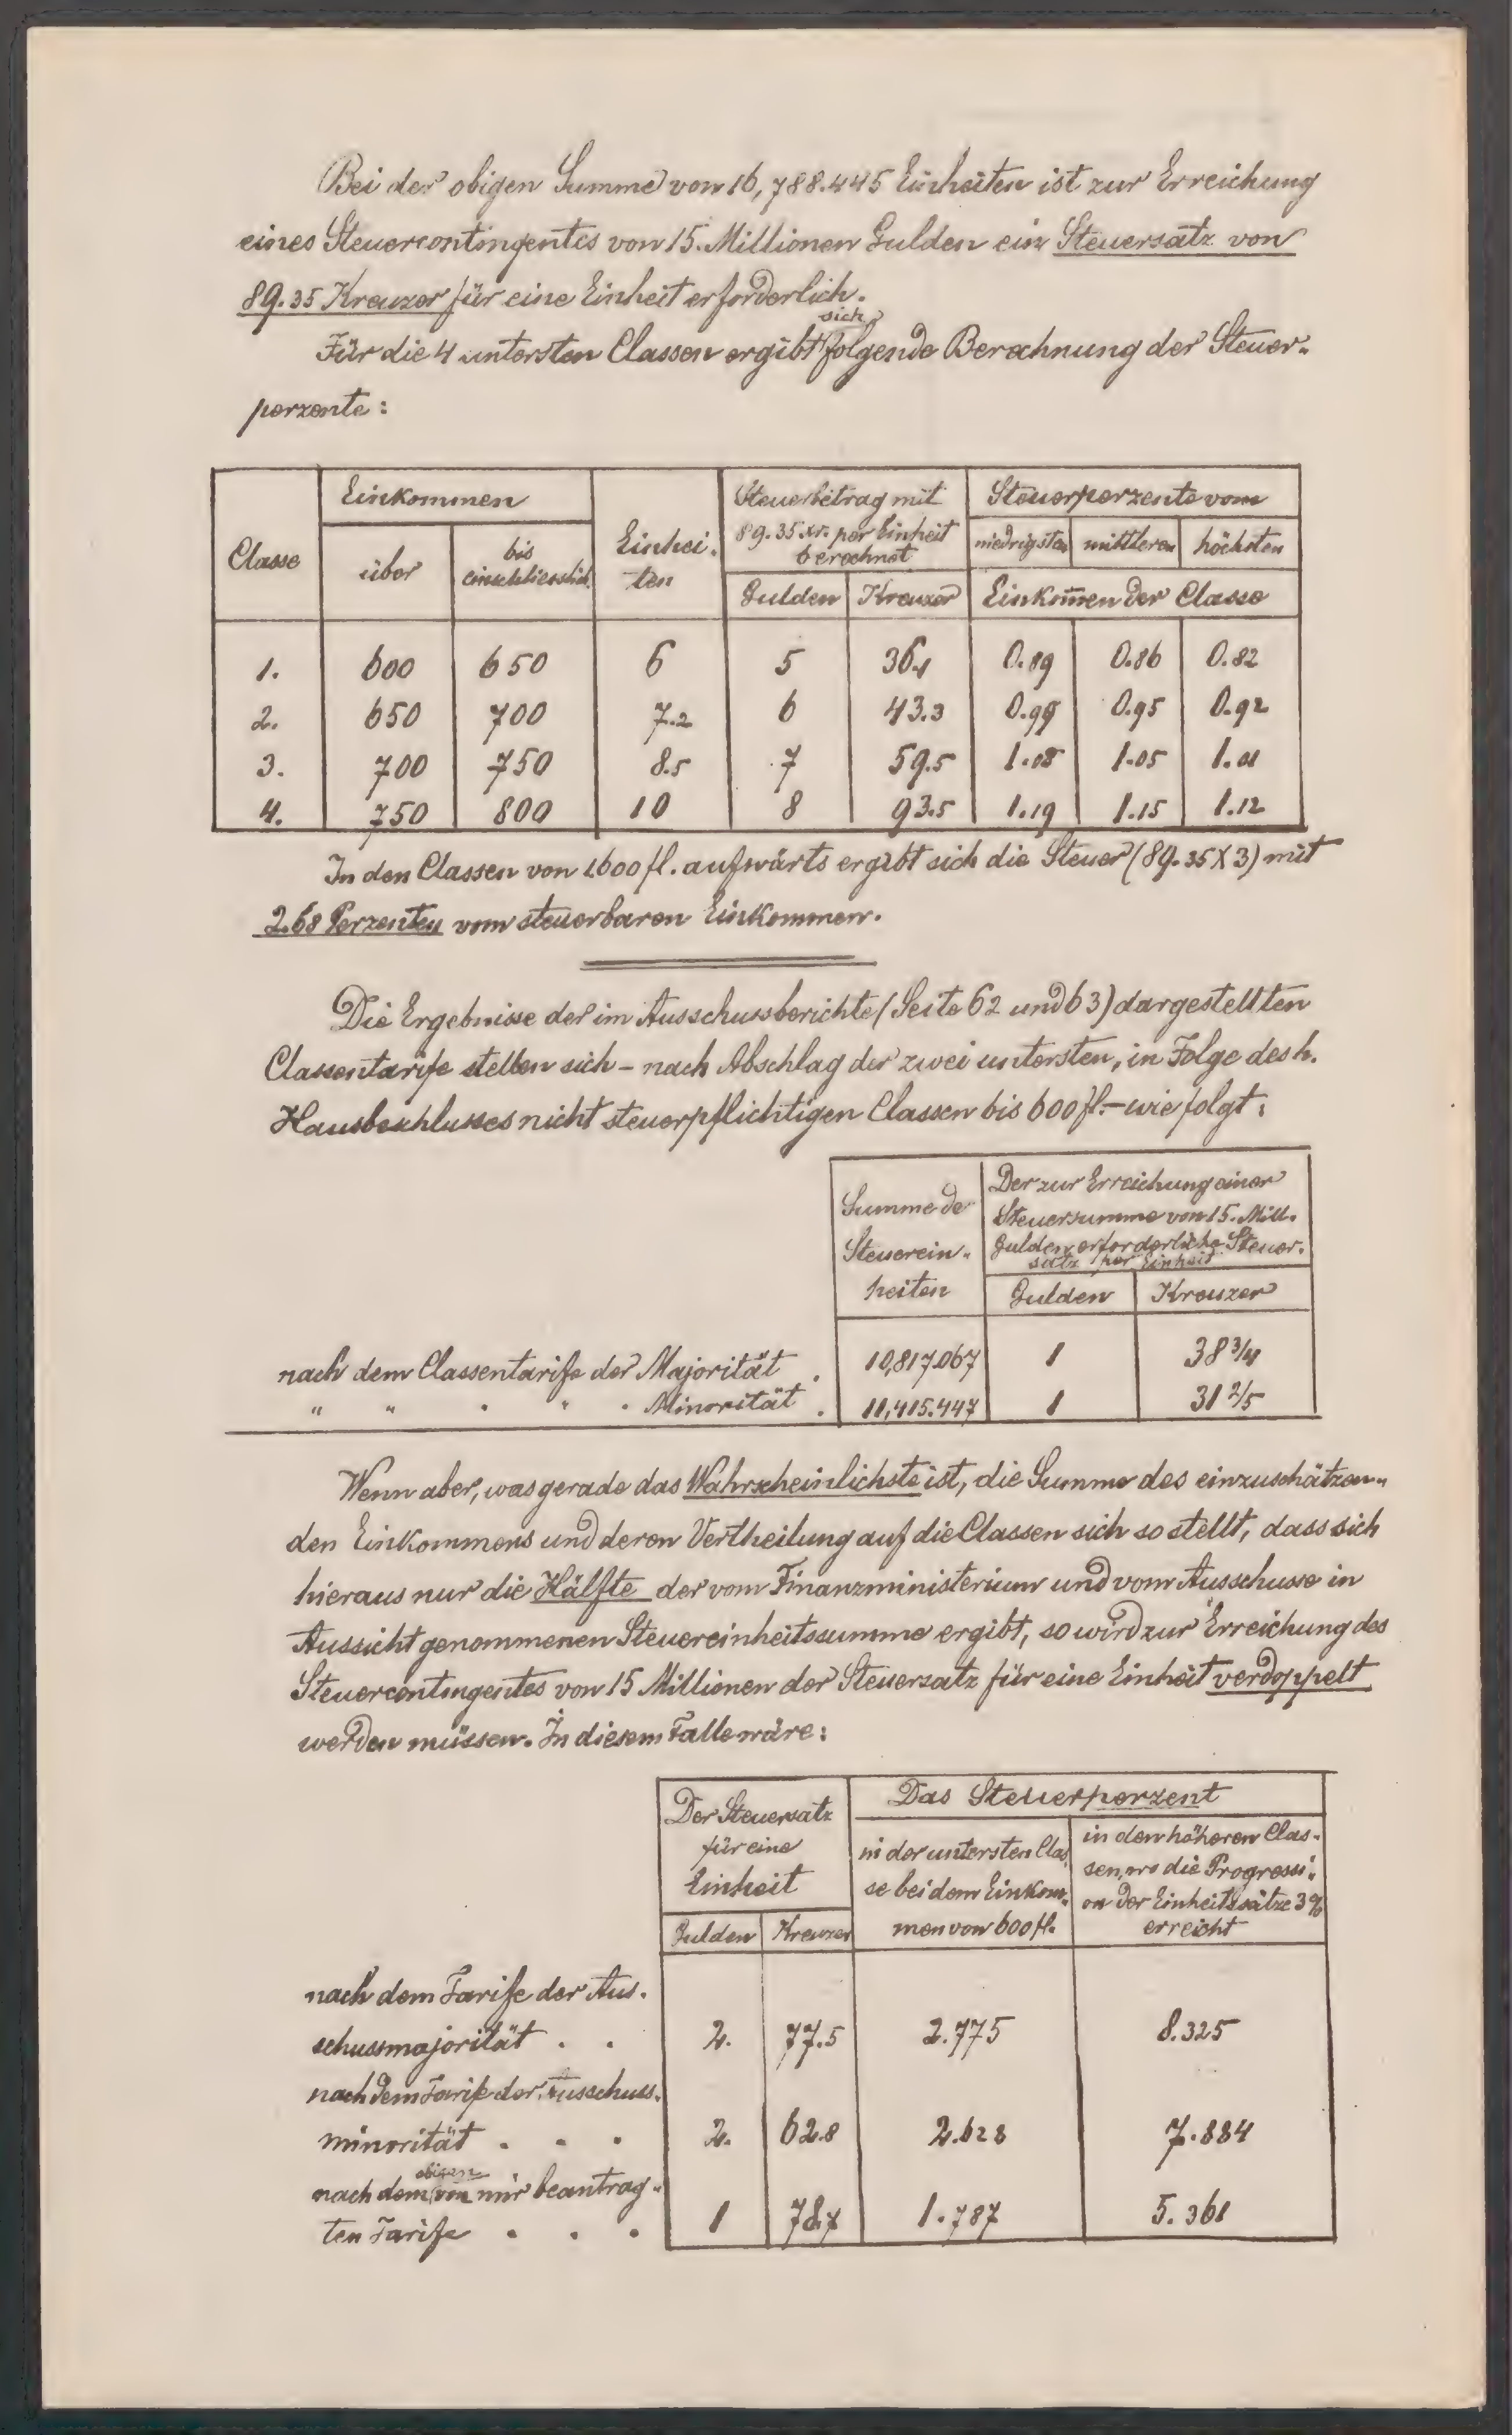 Bei der obigen Summe von 16,788.445 Einheiten ist zur Erreichung
eines Steuercontingentes von 15. Millionen Gulden ein Steuersatz von
89.35 Kreuzer für eine Einheit erforderlich.
sich
Für die 4 untersten Classen ergibt folgende Berechnung der Steuer-
perzente:
Classe | Einkommen | Einhei- | Steuerbetrag mit | Steuerperzente vom
über | bis einschliesslich | ten | 89.35 xr. per Einheit berechnet | niedrigsten | mittleren | höchsten
Gulden | Kreuzer | Einkommen der Classe
1. 600 650 6 5 36.1 0.89 0.86 0.82
2. 650 700 7.2 6 43.3 0.99 0.95 0.92
3. 700 750 8.5 7 59.5 1.08 1.05 1.01
4. 750 800 10 8 93.5 1.19 1.15 1.12
In den Classen von 1600 fl. aufwärts ergibt sich die Steuer (89.35 X 3) mit
2.68 Perzenten vom steuerbaren Einkommen.
Die Ergebnisse der im Ausschussberichte (Seite 62 und 63) dargestellten
Classentarife stellen sich – nach Abschlag der zwei untersten, in Folge des h.
Hausbeschlusses nicht steuerpflichtigen Classen bis 600 fl. – wie folgt:
Summe de
Steuerein-
heiten
Der zur Erreichung einer
Steuersumme von 15. Mill.
Gulden erforderliche Steuer-
satz per Einheit
Gulden | Kreuzer
nach dem Classentarife der Majorität . 10,817.067 1 38 3/4
" " " " " Minorität . 11,415.447 1 31 2/5
Wenn aber, was gerade das Wahrscheinlichste ist, die Summe des einzuschätzen-
den Einkommens und deren Vertheilung auf die Classen sich so stellt, dass sich
hieraus nur die Hälfte der vom Finanzministerium und vom Ausschusse in
Aussicht genommenen Steuereinheitssumme ergibt, so wird zur Erreichung des
Steuercontingentes von 15 Millionen der Steuersatz für eine Einheit verdoppelt
werden müssen. In diesem Falle wäre:
Der Steuersatz
für eine
Einheit
Gulden | Kreuzer
Das Steuerperzent
in der untersten Clas
se bei dem Einkom-
men von 600 fl.
in den höheren Clas-
sen, wo die Progressi-
on der Einheitssätze 3%
erreicht
nach dem Tarife der Aus-
schussmajorität . . 2. 77.5 2.775 8.325
nach dem Tarife der Ausschuss-
minorität . . . 2. 62.8 2.628 7.884
obigen
nach dem von mir beantrag-
ten Tarife . . . 1 78.7 1.787 5.361